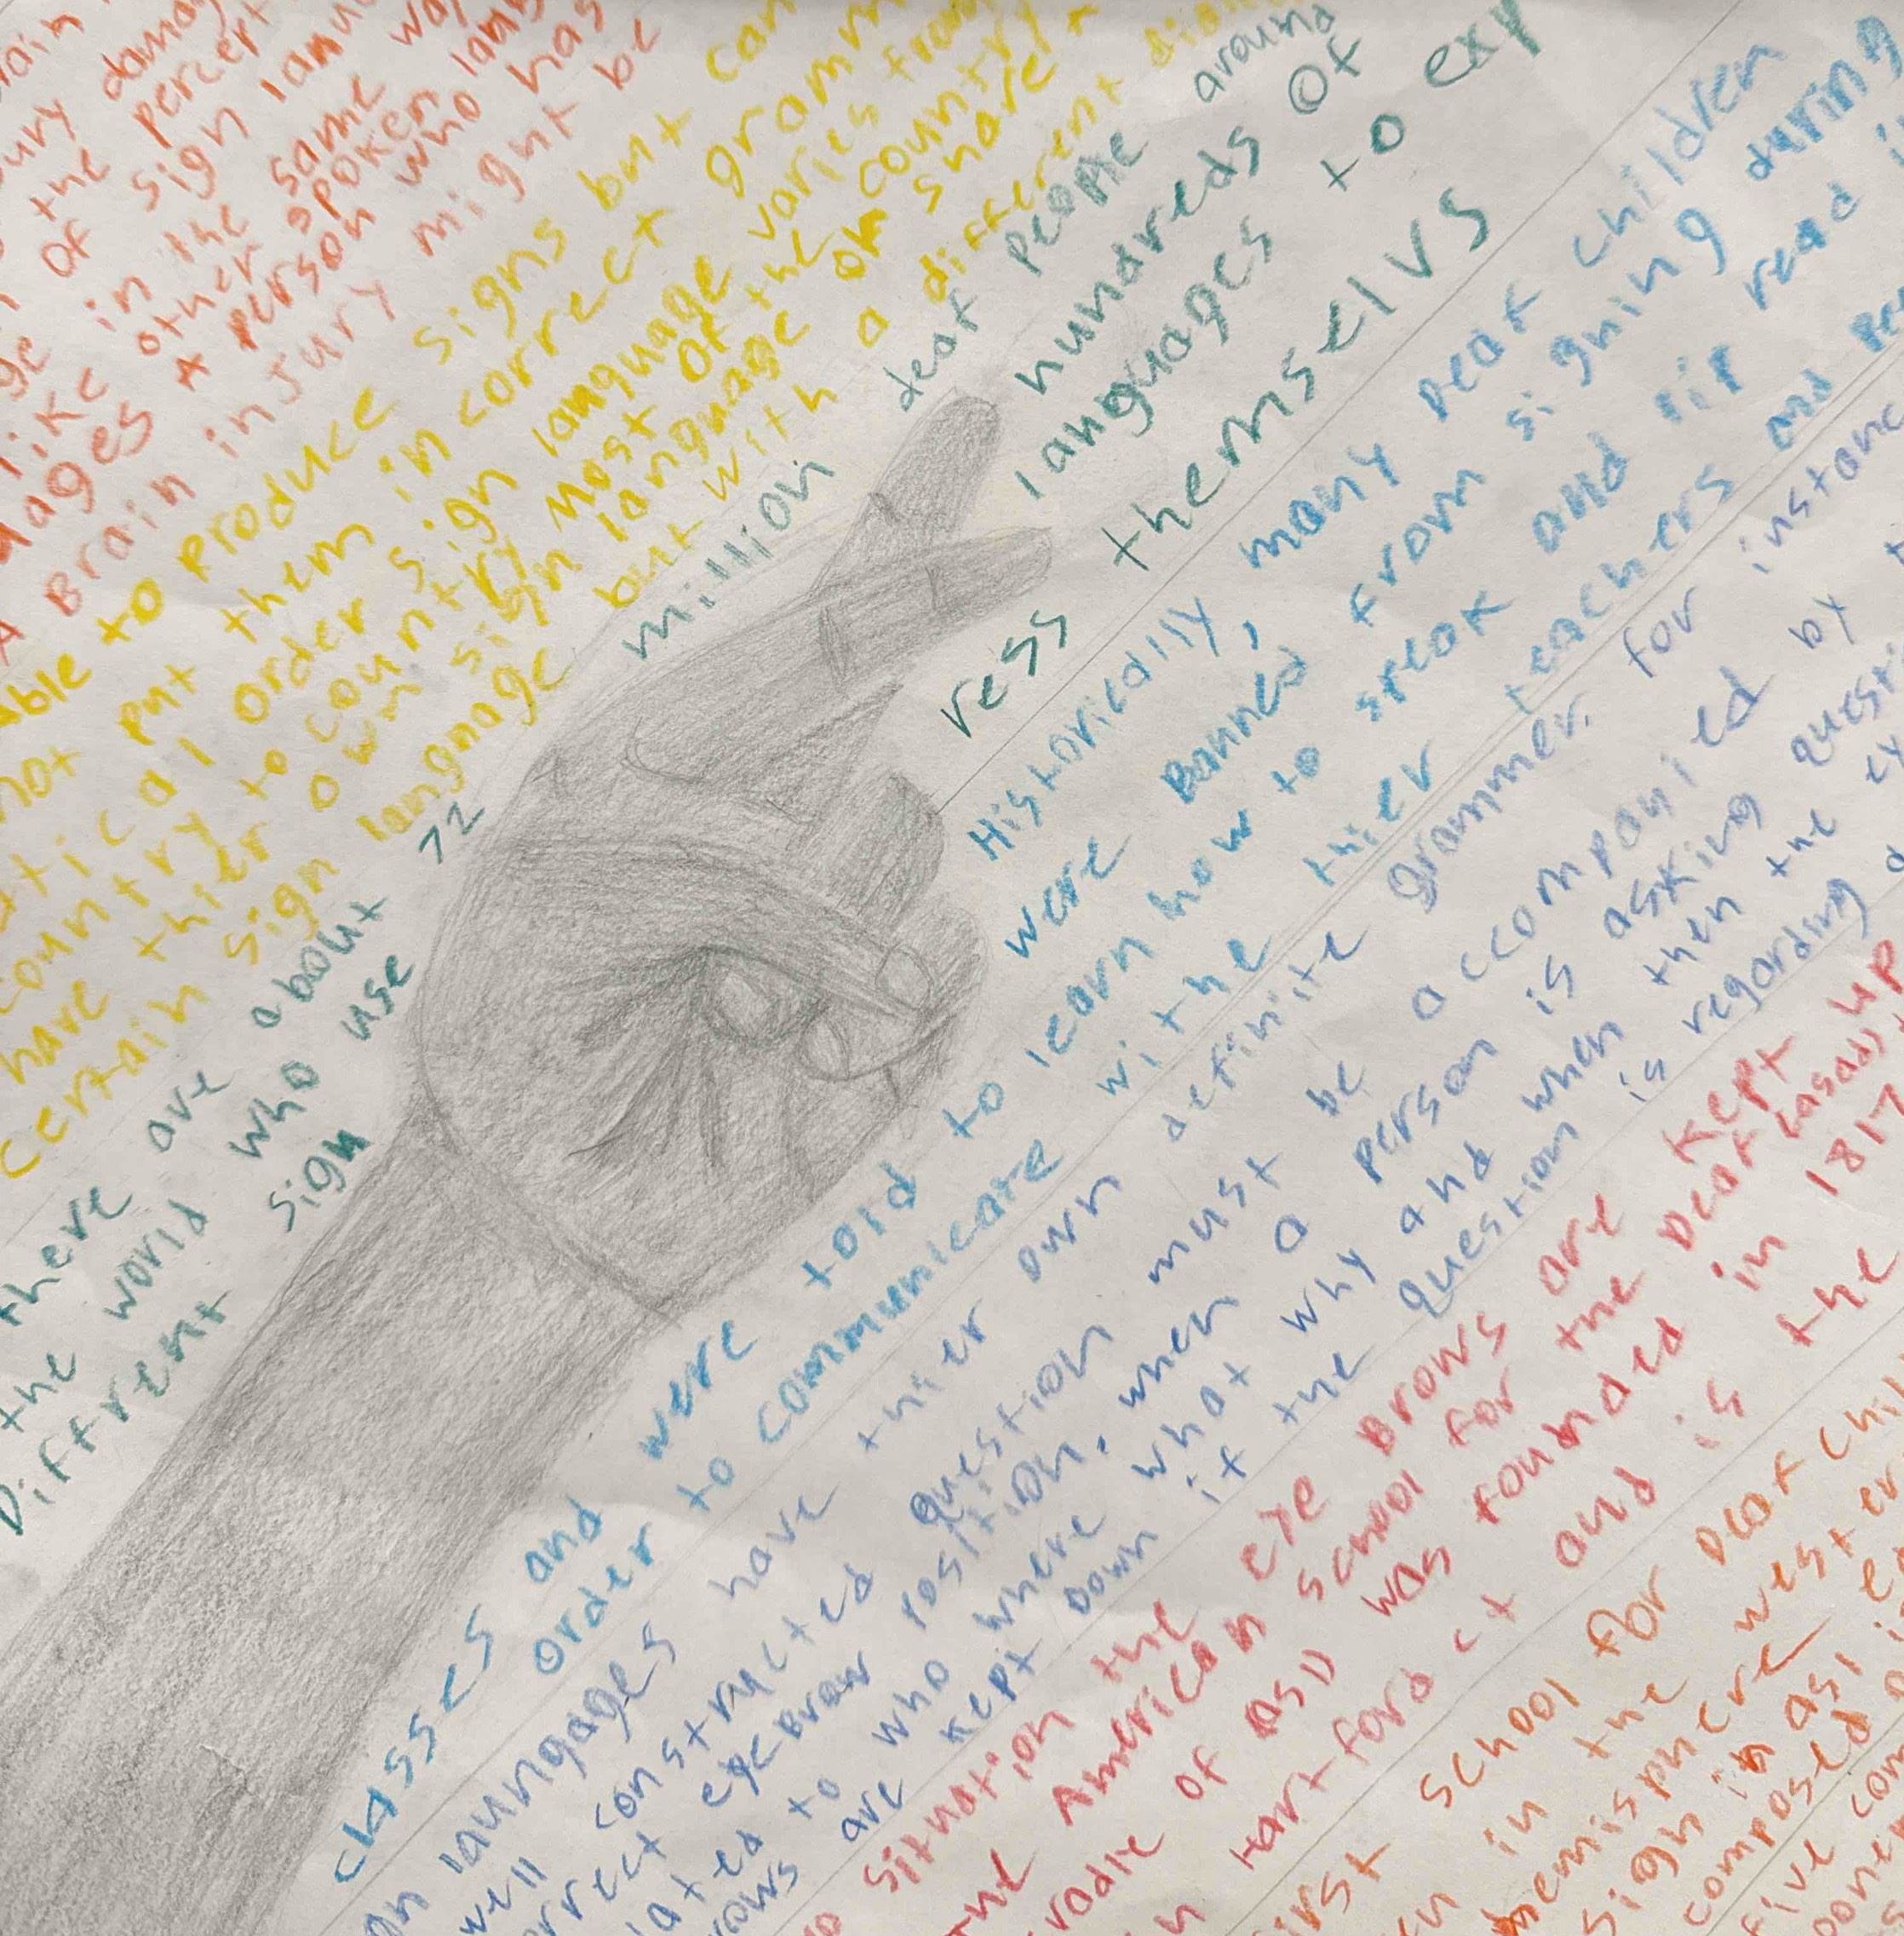 ury damag
of the percent
of sign langu
ge in the same way
like other spoken lang
uages A person who has
A Brain injury might be
able to produce signs but can
not put them in correct gramm
atical order sign language varies from
country to country Most of the country
have thier own sign language or share
certain sign language but with a different
there are about 72 million deaf people around
the world who use hundreds of
Diffrent sign languages to exp
ress themselvs
Historically, many Deaf children
were Banned from signing during
classes and were told to learn how to speak and lip read in
order to communicate with thier teachers and
laungages have thier own definite Grammer. for instance
well constructed question must be accompanied by
rrect eyebrow position, when a person is asking questi
lated to who where what why and when then the ey
rows are kept Down if the question is regarding
situation the eye Brows are kept up
The American school for the Deaf
of asl) was founded in 1817
Hartford ct and is the
irst school for Deaf Chil
in the wester
hemisphere
sign in asl
composed
five com